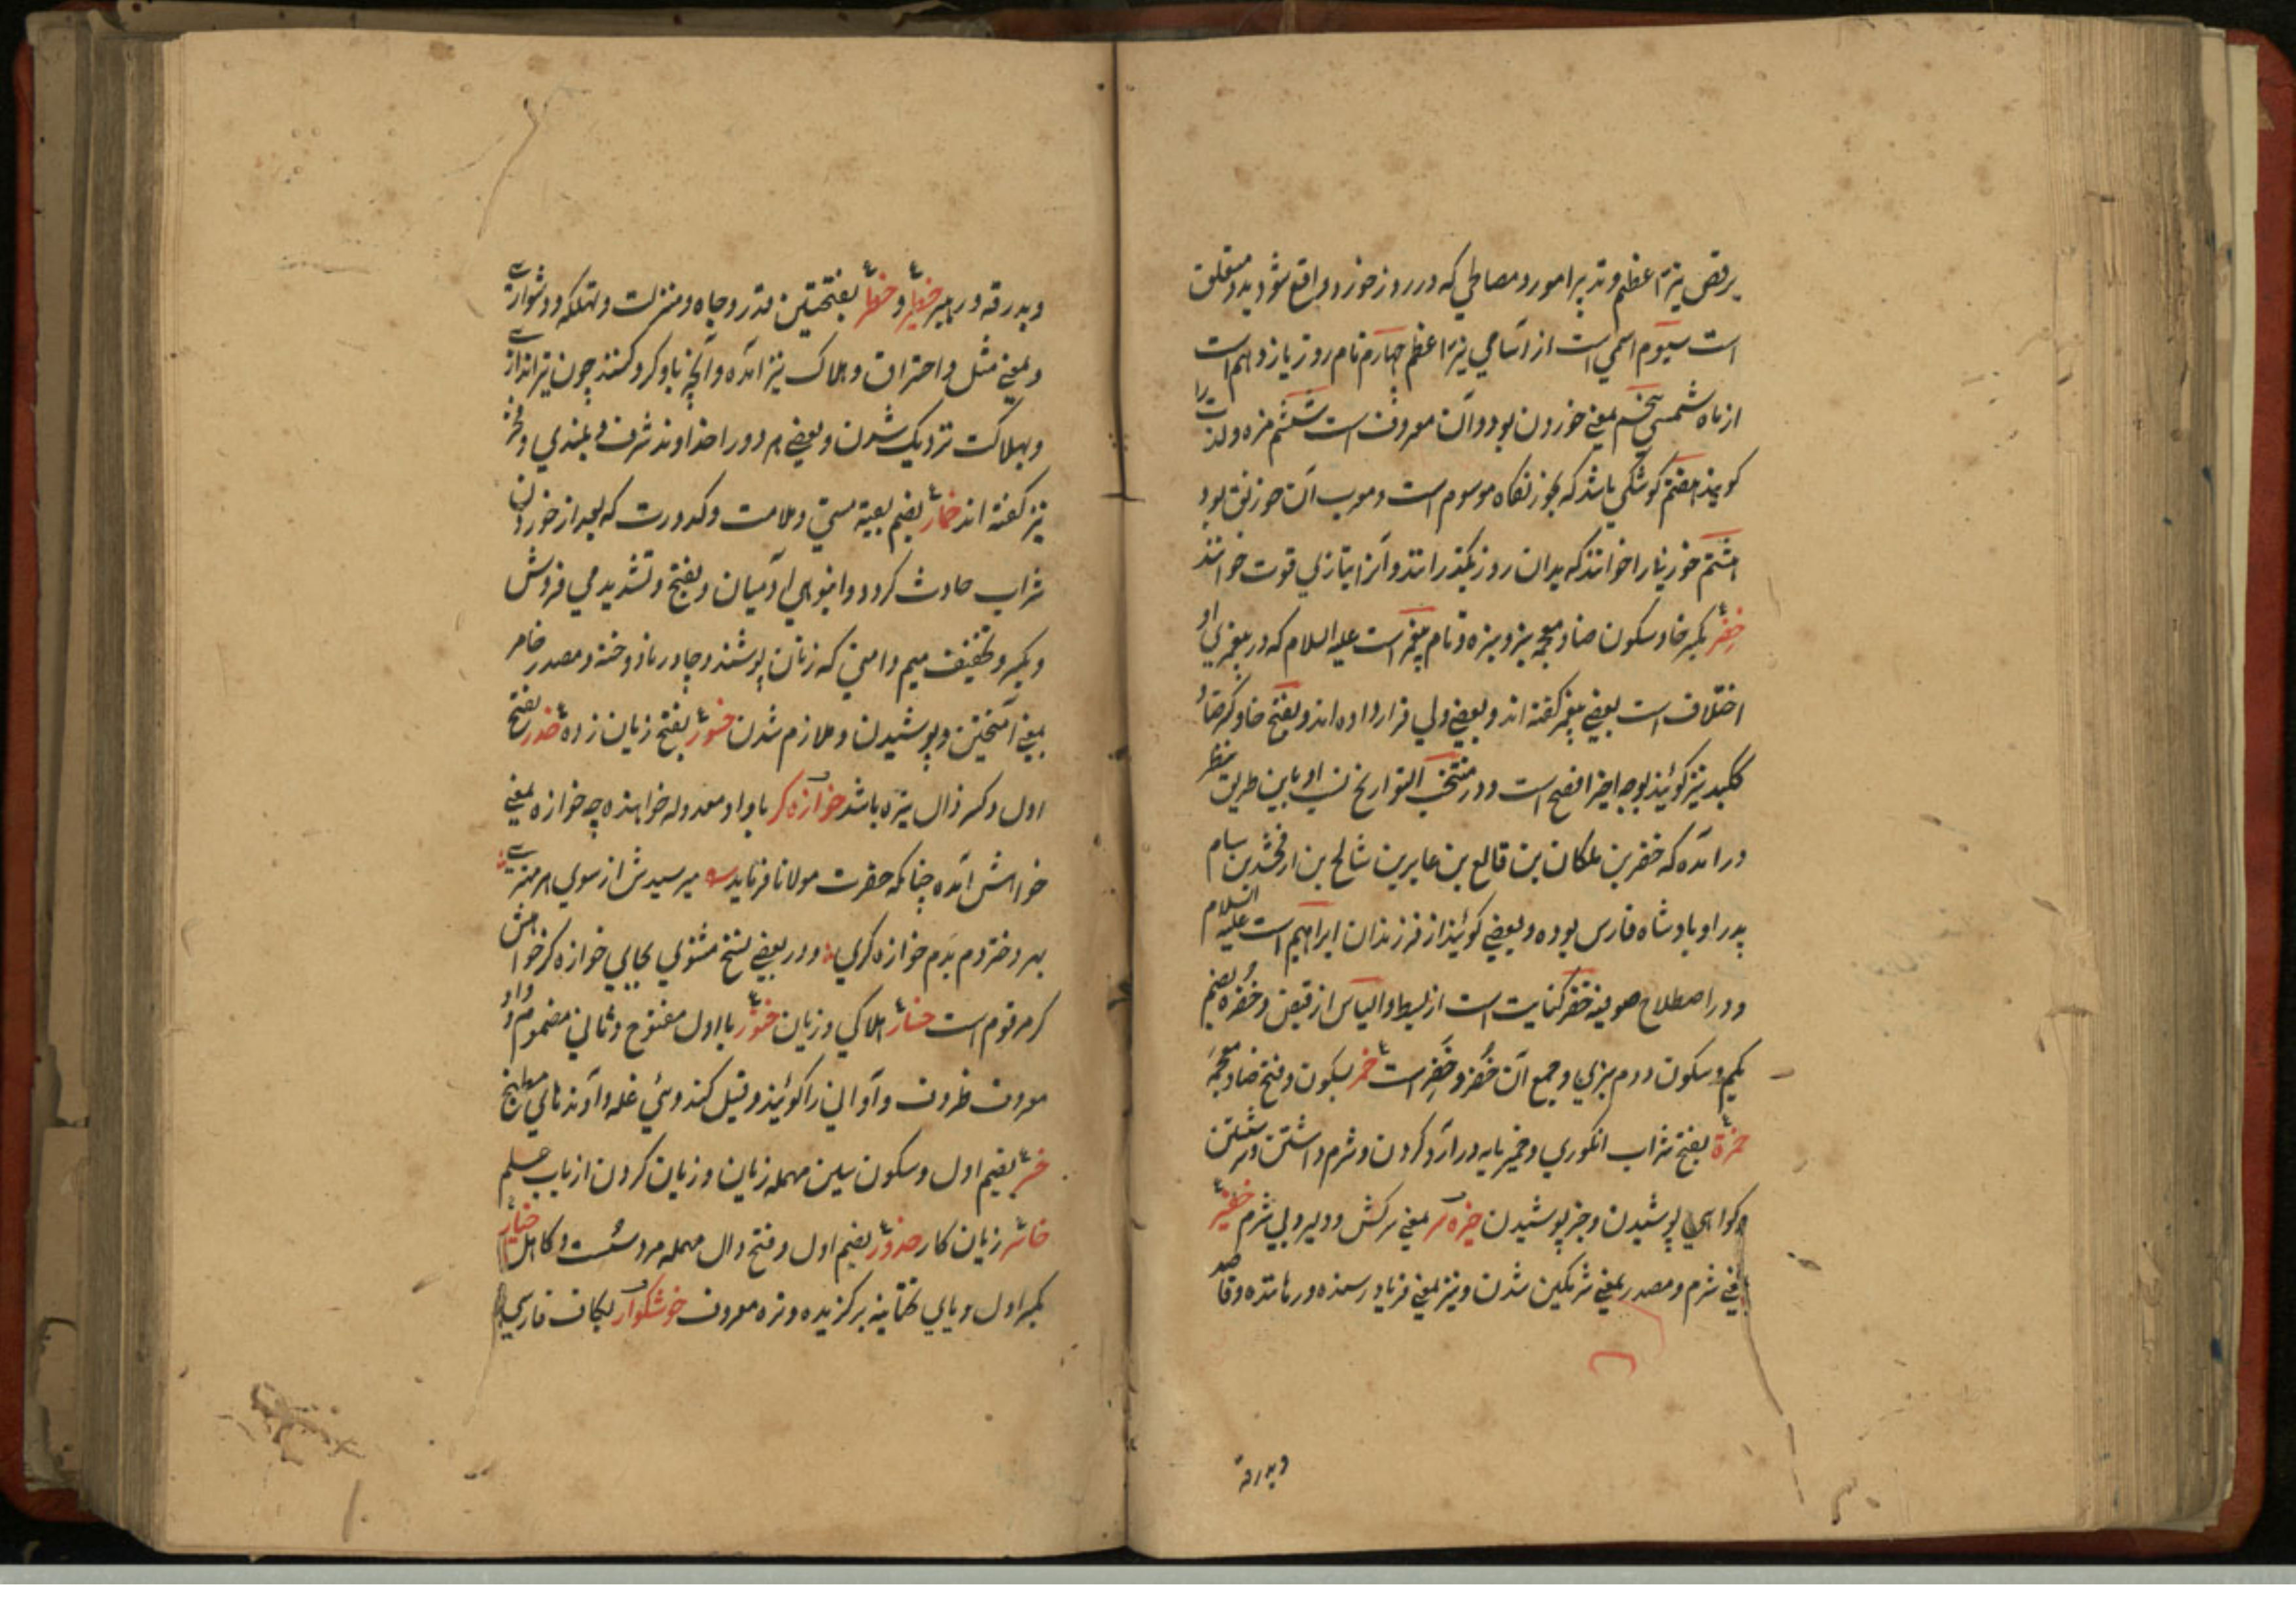 برقص نیر اعظم و تدبیر امور و مصالحی که در روز خور واقع شود بدو متعلق
است سیوم اسمی است از اسامی نیر اعظم چهارم نام روز یازدهم است
از ماه شمسی پنجم بمعنی خوردن بود و آن معروفست ششم مزه و لذت را
کویند هفتم کوشکی باشد که بخورنکاه موسوم است و معرب آن خورنق بود
هشتم خور نیاز را خوانند که بدان روز بکذرانند و آنرا بتازی قوت خوانند
خضر بکسر خا و سکون ضاد معجمه سبز و سبزه و نام پیغمبر است علیه السلام که در پیغمبری او
اختلاف است بعضی پیغمبر کفته اند و بعضی ولی قرار داده اند و بفتح خا و کسر ضاد
کلبد نیز کویند بوجه اخیر افصح است و در منتخب التواریخ نسب او باین طریق بنظر
درآمده که خضر بن ملکان بن فالع بن عابر بن شالح بن ارفخشد بن سام
پدر او بادشاه فارس بوده و بعضی کویند از فرزندان ابراهیم است علیه السلام
و در اصطلاح صوفیه خضر کنایت است از بسط و الیاس از قبض و خضره بضم
یکم و سکون دوم سبزی و جمع آن خُضر و خَضِر است خمر بسکون و فتح ضاد معجمه
خمرة بفتح شراب انکوری و خمیر مایه در آرد کردن و شرم داشتن و سرشتن
و کواهی پوشیدن و جز پوشیدن خیره سر بمعنی سرکش و دلیر و بی شرم خفیر
بمعنی شرم و مصدر بمعنی شرمکین شدن و نیز بمعنی فریادرسنده درمانده و قاصد
وبدرقه
وبدرقه و رهبر خطیر و خطر بفتحتین قدر و جاه و منزلت و تهلکه و دشواری
و بمعنی مثل و احتراق و هلاک نیز آمده و آنچه باو کرو کنند چون تیراندازی
و بهلاکت نزدیک شدن و بعضی هر دو را خداوند شرف و بلندی و فخر
نیز کفته اند خمار بضم بقیه مستی و ملامت و کدورت که بعد از خوردن
شراب حادث کردد و انبوهی آدمیان و بفتح و تشدید می فروش
و بکسر و تخفیف میم دامنی که زنان پوشند و چادر نادوخته و مصدر خامر
بمعنی آمیختن و پوشیدن و ملازم شدن خسور بفتح زیان زده خدر بفتح
اول و کسر ذال تیره باشد خوازه کر با واو معدوله خواهنده چه خوازه بمعنی
خواهش آمده چنانکه حضرت مولانا فرماید میرسیدش از سوی هر مهتری
بهر دختر دم بدم خوازه کری و در بعضی نسخ مثنوی بجای خوازه کر خواهش
کر مرقوم است خسار هلاکی و زیان خنور با اول مفتوح و ثانی مضموم و واو
معروف ظروف و آوانی را کویند و قیل کندوئی غله و آوندهای مطبخ
خسر بضم اول و سکون سین مهمله زیان و زیان کردن از باب علم
خاسر زیان کار خدور بضم اول و فتح دال مهمله مرد سست و کاهل خیار
بکسر اول و یای تحتانیه برکزیده و تره معروف خوشکوار بکاف فارسی